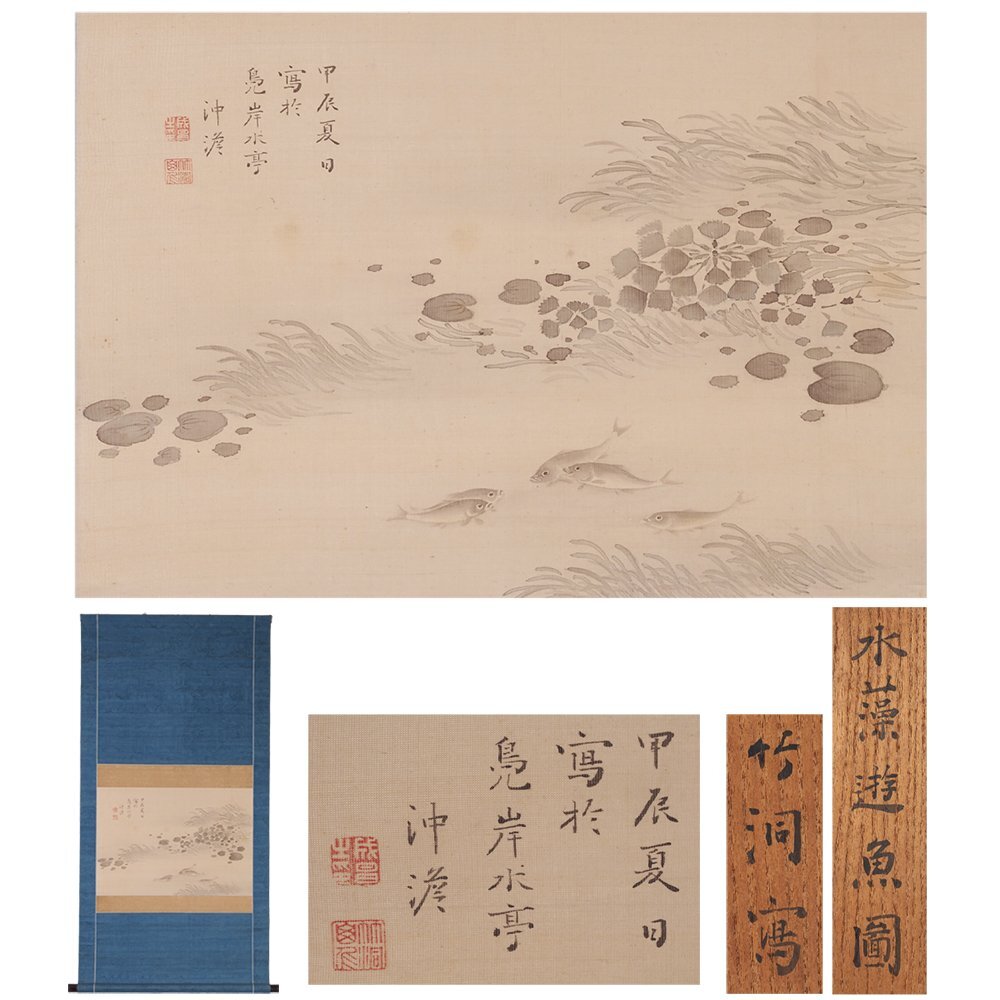 甲辰夏日
寫於
鳧岸水亭
沖澹
甲辰夏日
寫於
鳧岸水亭
沖澹
竹洞寫
水藻遊魚圖